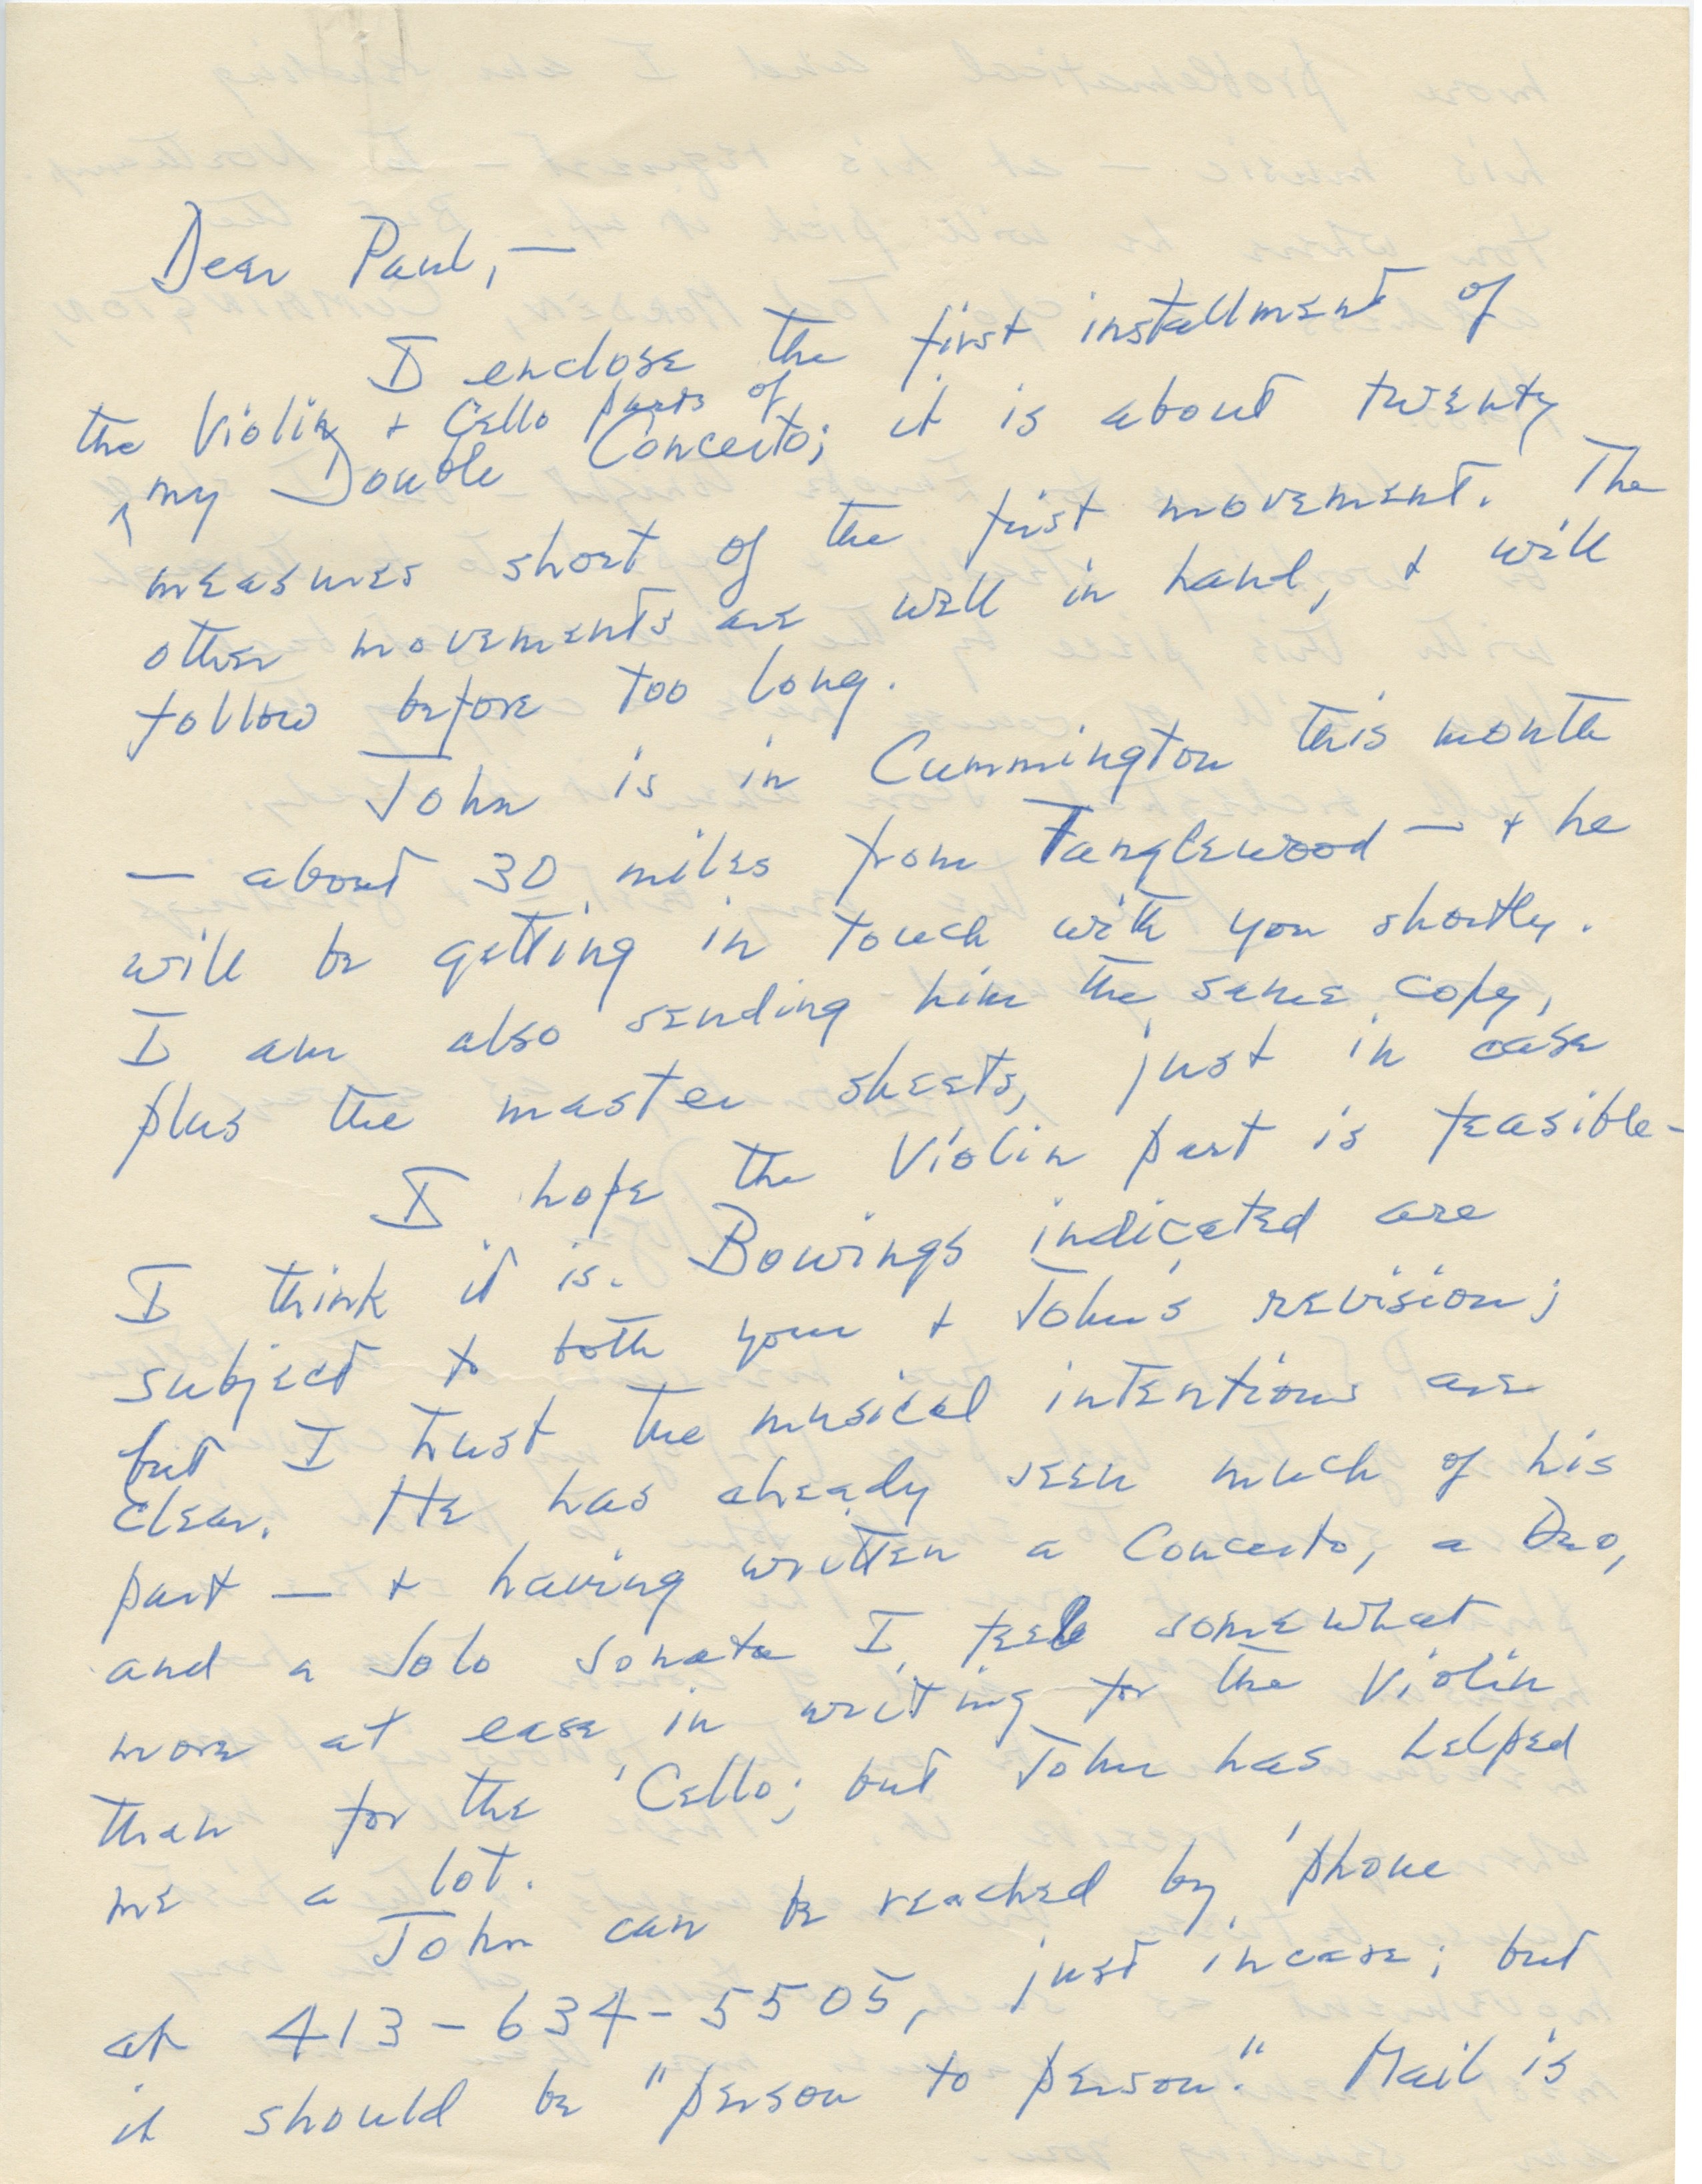 Dear Paul,—
I enclose the first installment of
the Violin + Cello parts of
my Double Concerto; it is about twenty
measures short of the first movement. The
other movements are well in hand, + will
follow before too long.
John is in Cummington this month
— about 30 miles from Tanglewood — + he
will be getting in touch with you shortly.
I am also sending him the same copy,
plus the master sheets, just in case
I hope the Violin part is feasible –
I think it is. Bowings indicated are
subject to both your + John's revision;
but I trust the musical intentions are
clear. He has already seen much of his
part — + having written a Concerto, a Duo,
and a Solo Sonata I feel somewhat
more at ease in writing for the Violin
than for the 'Cello; but John has helped
me a lot.
John can be reached by 'phone
at 413-634-5505, just incase; but
it should be "person to person." Mail is